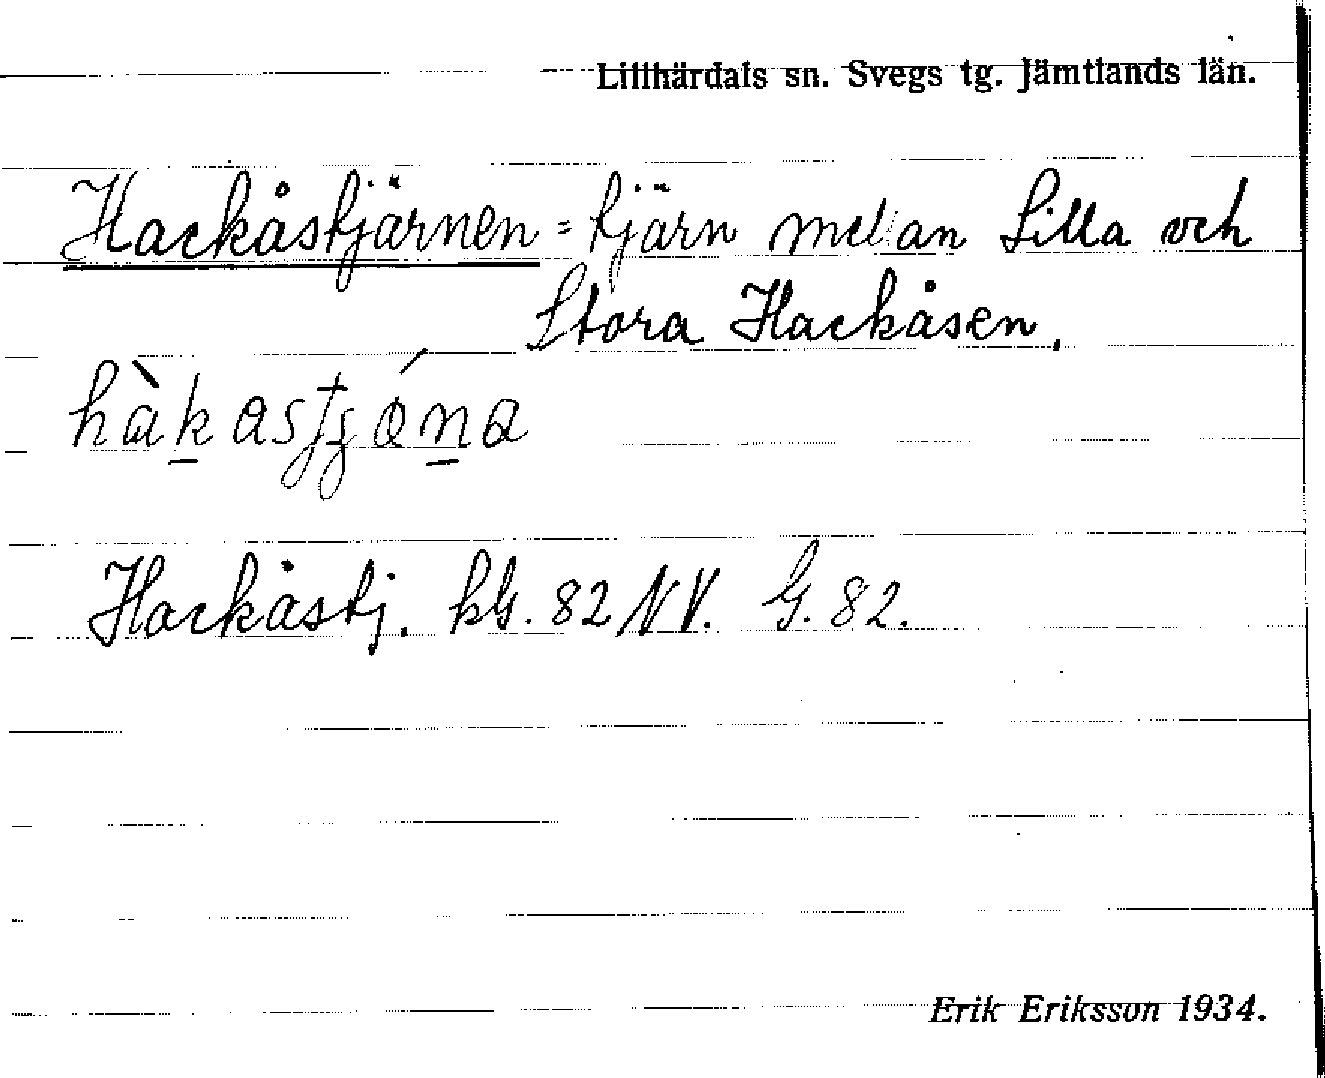 Lillhärdals sn. Svegs tg. Jämtlands län.
Hackåstjärnen = tjärn mellan Lilla och
Stora Hackåsen.
Hackåstj. kbl. 82 NV. G. 82.
Erik Eriksson 1934.